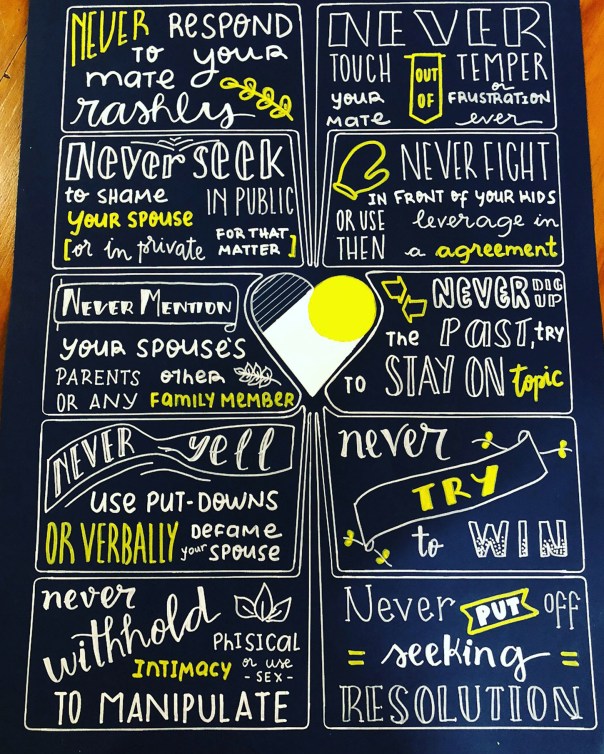 NEVER RESPOND
TO your
mate
rashly
NEVER
TOUCH OUT TEMPER
or
YOUR OF FRUSTRATION
MATE ever
Never seek
to SHAME IN PUBLIC
YOUR SPOUSE
[or in private FOR THAT MATTER]
NEVER FIGHT
IN FRONT OF YOUR KIDS
OR USE leverage in
THEN a agreement
NEVER MENTION
YOUR SPOUSE'S
PARENTS OTHER
OR ANY FAMILY MEMBER
NEVER DIG UP
THE PAST, TRY
TO STAY ON topic
NEVER yell
USE PUT-DOWNS
OR VERBALLY DEFAME
your SPOUSE
never
TRY
to WIN
never
withhold
PhISICAL
INTIMACY or use
- SEX -
TO MANIPULATE
Never PUT OFF
= seeking =
RESOLUTION